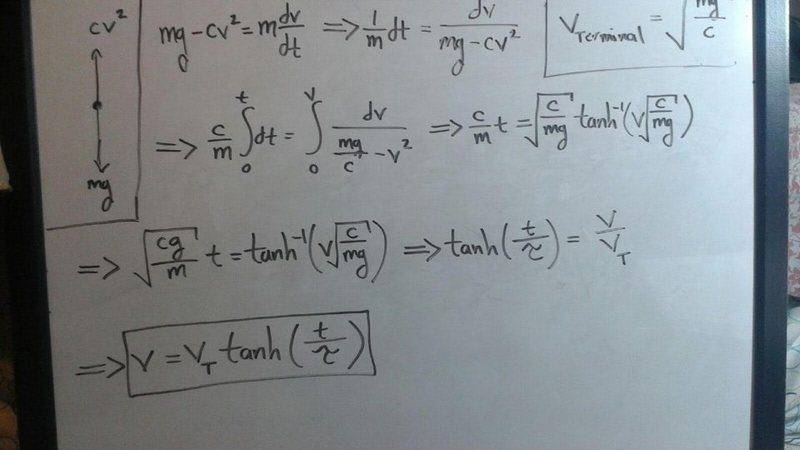 cv²
mg
mg - cv² = m dv/dt ⇒ 1/m dt = dv/(mg - cv²)
V_Terminal = √(mg/c)
⇒ c/m ∫₀ᵗ dt = ∫₀ᵛ dv/(mg/c - v²) ⇒ c/m t = √(c/mg) tanh⁻¹(v√(c/mg))
⇒ √(cg/m) t = tanh⁻¹(v√(c/mg)) ⇒ tanh(t/τ) = V/V_T
⇒ V = V_T tanh(t/τ)